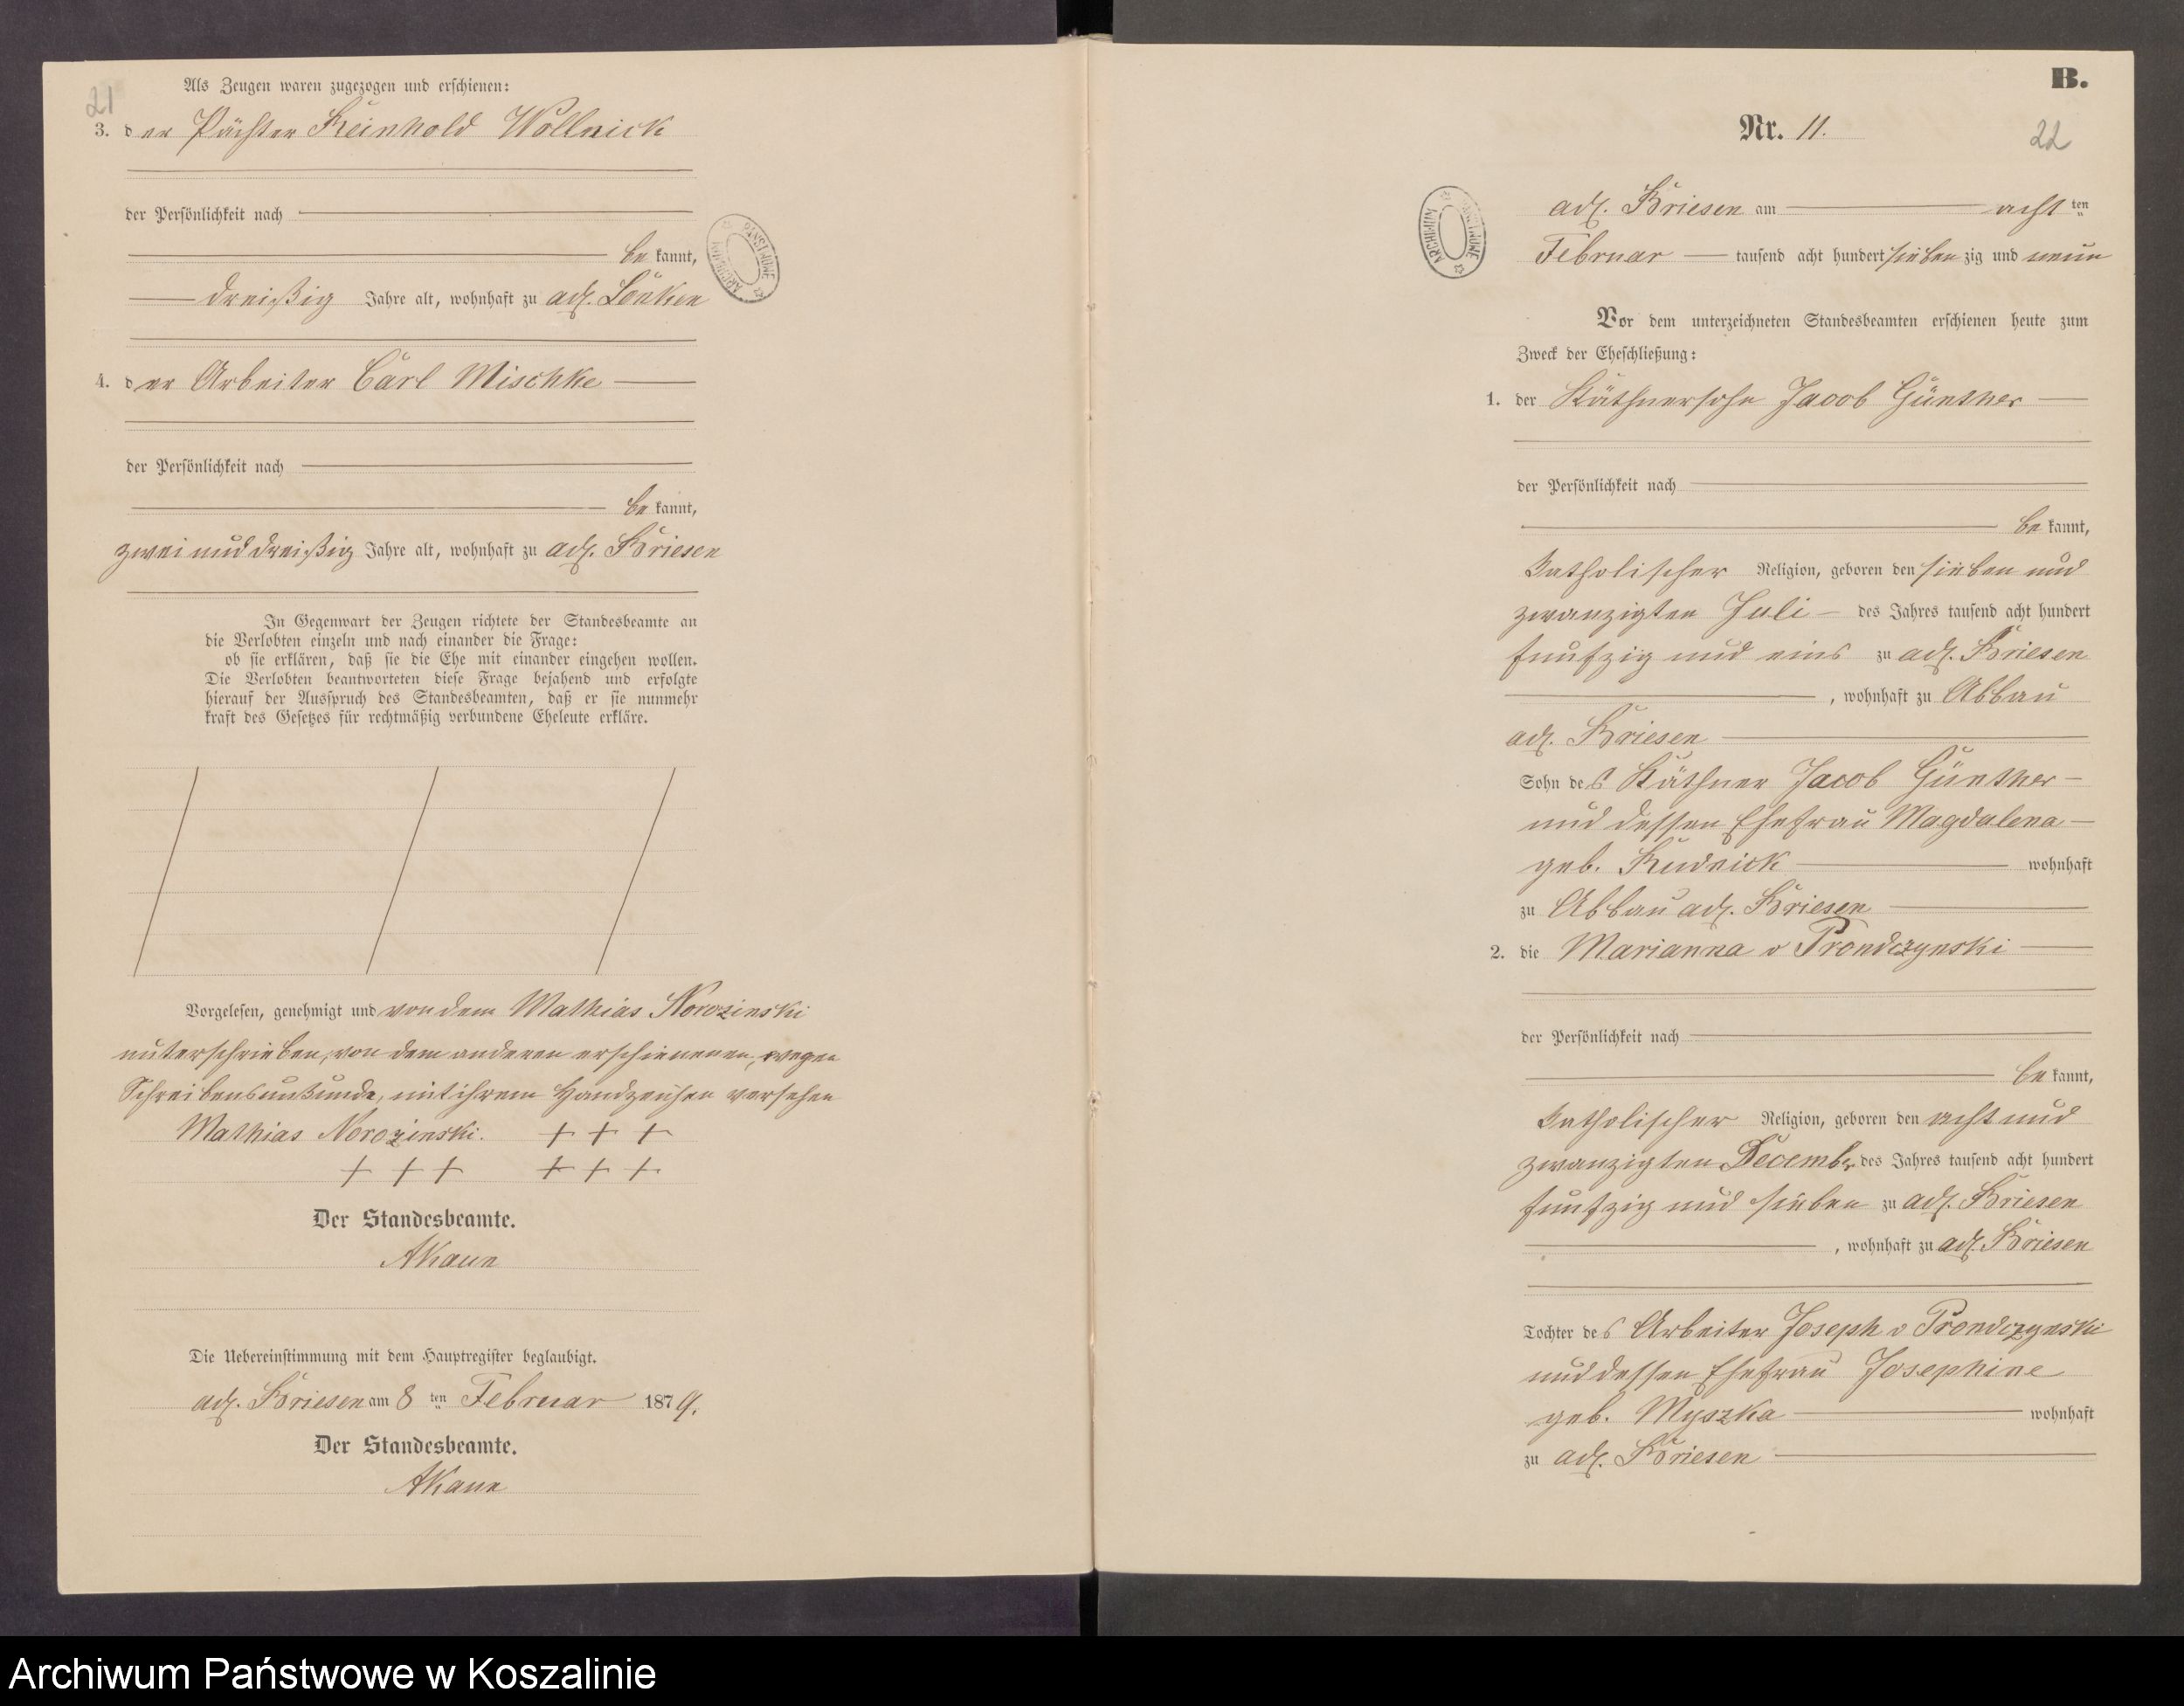 21
Als Zeugen waren zugezogen und erschienen:
3. der Pächter Reinhold Wollnick
der Persönlichkeit nach
bekannt,
dreißig Jahre alt, wohnhaft zu adl. Lonken
4. der Arbeiter Carl Mischke
der Persönlichkeit nach
bekannt,
zwei und dreißig Jahre alt, wohnhaft zu adl. Briesen
In Gegenwart der Zeugen richtete der Standesbeamte an
die Verlobten einzeln und nach einander die Frage:
ob sie erklären, daß sie die Ehe mit einander eingehen wollen.
Die Verlobten beantworteten diese Frage bejahend und erfolgte
hierauf der Ausspruch des Standesbeamten, daß er sie nunmehr
kraft des Gesetzes für rechtmäßig verbundene Eheleute erkläre.
Vorgelesen, genehmigt und von dem Mathias Norozinski
unterschrieben, von dem anderen erschienenen, wegen
Schreibensunkunde, mit ihrem Handzeichen versehen
Mathias Norozinski. + + +
+ + + + + +
Der Standesbeamte.
AKaun
Die Uebereinstimmung mit dem Hauptregister beglaubigt.
adl. Briesen am 8ten Februar 1879.
Der Standesbeamte.
AKaun
ARCHIWUM PAŃSTWOWE
B.
Nr. 11.
22
ARCHIWUM PAŃSTWOWE
adl. Briesen am achtten
Februar tausend acht hundert siebenzig und neun
Vor dem unterzeichneten Standesbeamten erschienen heute zum
Zweck der Eheschließung:
1. der Käthnersohn Jacob Günther
der Persönlichkeit nach
bekannt,
katholischer Religion, geboren den sieben und
zwanzigten Juli des Jahres tausend acht hundert
funfzig und eins zu adl. Briesen
, wohnhaft zu Abbau
adl. Briesen
Sohn des Käthner Jacob Günther
und dessen Ehefrau Magdalena
geb. Rudnick wohnhaft
zu Abbau adl. Briesen
2. die Marianna v Prondczynski
der Persönlichkeit nach
bekannt,
katholischer Religion, geboren den acht und
zwanzigten Decembr des Jahres tausend acht hundert
funfzig und sieben zu adl. Briesen
, wohnhaft zu adl. Briesen
Tochter des Arbeiter Joseph v Prondczynski
und dessen Ehefrau Josephine
geb. Myszka wohnhaft
zu adl. Briesen
Archiwum Państwowe w Koszalinie